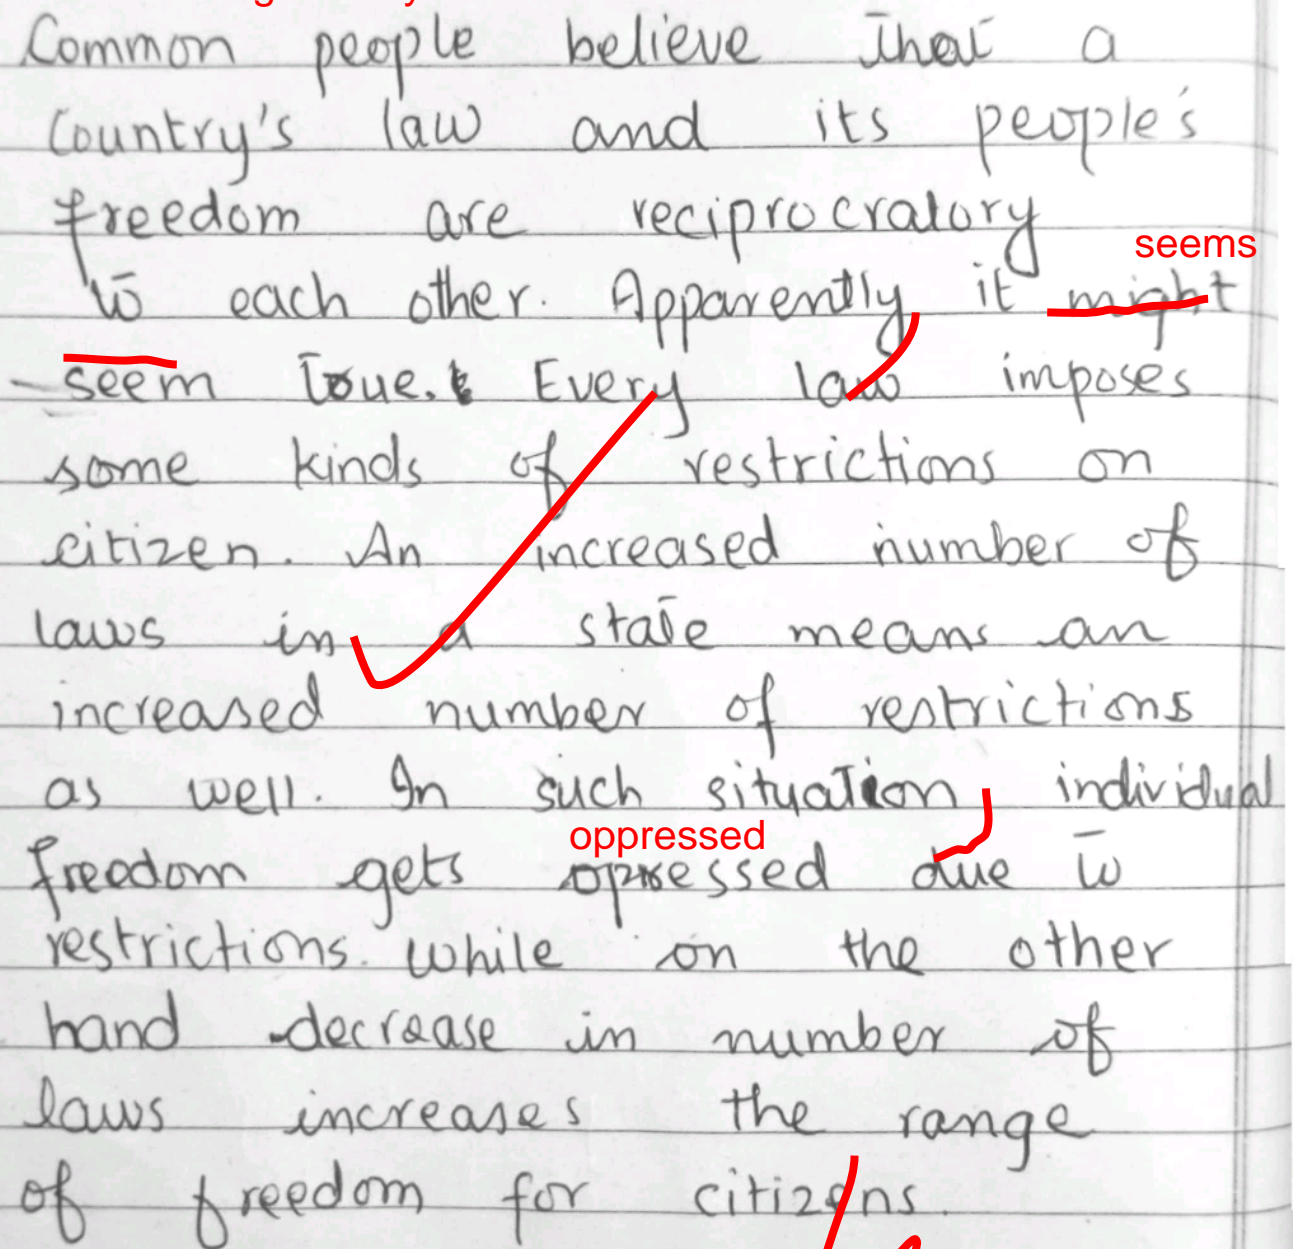 Common people believe that a
Country's law and its people's
freedom are reciprocratory
seems
to each other. Apparently it might
seem true. Every law imposes
some kinds of restrictions on
citizen. An increased number of
laws in a state means an
increased number of restrictions
as well. In such situation, individual
oppressed
freedom gets opressed due to
restrictions. While on the other
hand decrease in number of
laws increases the range
of freedom for citizens.